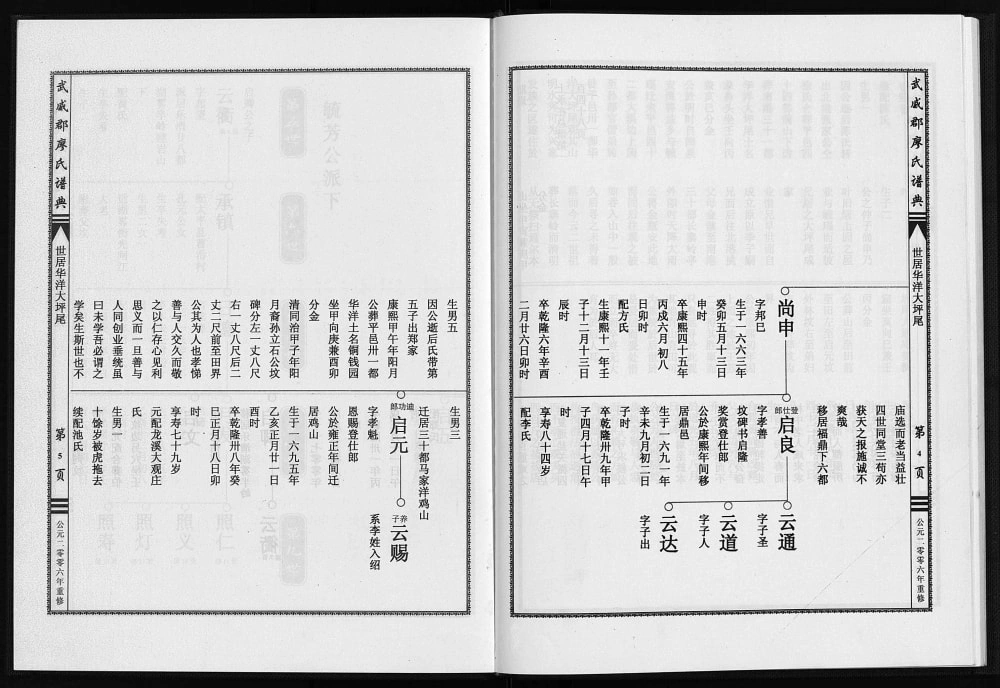 武威郡廖氏谱典
世居华洋大坪尾
第4页
公元二零零六年重修
尚申
字邦巳
生于一六六三年
癸卯五月十三日
申时
卒康熙四十五年
丙戌六月初八
日卯时
配方氏
生康熙十一年壬
子十二月十三日
辰时
卒乾隆六年辛酉
二月廿六日卯时
庙选而老当益壮
四世同堂三荀亦
获天之报施诚不
爽哉
移居福鼎下六都
登仕郎
启良
字孝善
坟碑书启隆
奖赏登仕郎
公於康熙年间移
居鼎邑
生于一六九一年
辛未九月初二日
子时
卒乾隆卅九年甲
子四月十七日午
时
享寿八十四岁
配李氏
云通
字子圣
云道
字子人
云达
字子出
武威郡廖氏谱典
世居华洋大坪尾
第5页
公元二零零六年重修
生男五
因公逝后氏带第
五子出郑家
康熙甲午年阳月
公葬平邑卅一都
华洋土名铜钱园
坐甲向庚兼酉卯
分金
清同治甲子年阳
月裔孙立石公坟
碑分左一丈八尺
右一丈八尺后二
丈二尺前至田界
公其为人也孝悌
善与人交久而敬
之以仁存心见利
思义而一旦善与
人同创业垂统虽
曰未学吾必谓之
学矣生斯世也不
生男三
迁居三十都马家洋鸡山
迪功郎
启元
字孝魁
恩赐登仕郎
公於雍正年间迁
居鸡山
生于一六九五年
乙亥正月廿一日
酉时
卒乾隆卅八年癸
巳正月十八日卯
时
享寿七十九岁
元配龙溪大观庄
氏
生男一
十馀岁被虎拖去
续配池氏
养子
云赐
系李姓入绍